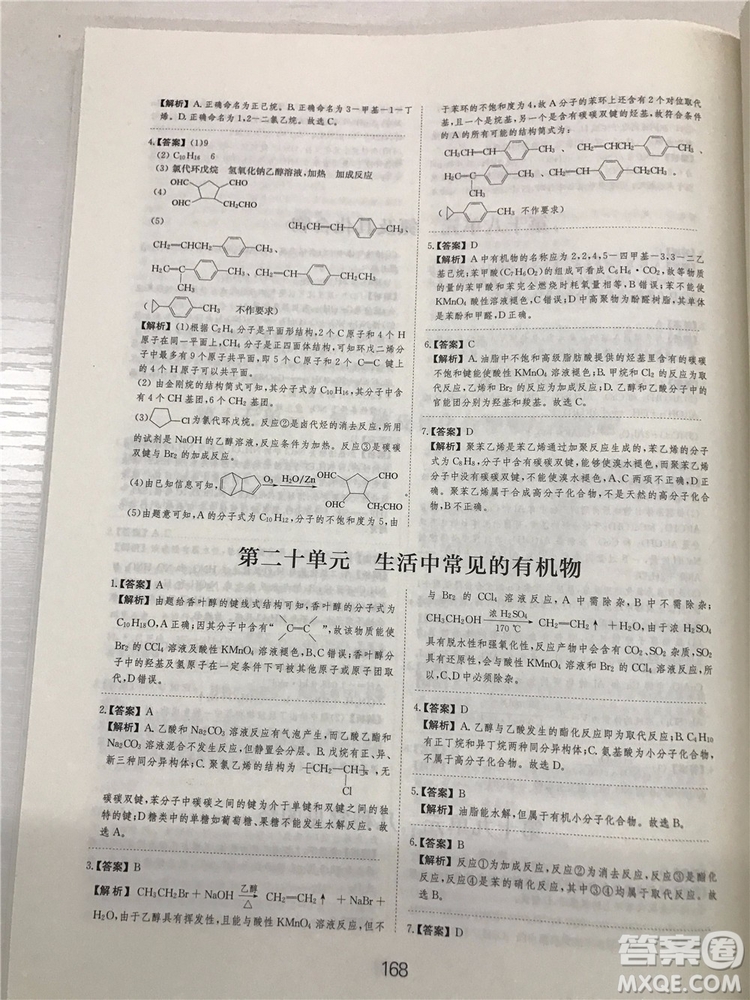 【解析】A. 正确命名为正己烷。B. 正确命名为 3－甲基－1－丁
烯。D. 正确命名为 1,2－二氯乙烷。故选 C。
4.【答案】(1)9
(2)C₁₀H₁₆　6
(3)氯代环戊烷　氢氧化钠乙醇溶液,加热　加成反应
(4)
OHC CHO
OHC CH₂CHO
(5)
CH₃CH=CH CH₃
CH₂=CHCH₂ CH₃
H₂C=C CH₃ CH₂=CH CH₂CH₃
CH₃
( CH₃ 不作要求)
【解析】(1)根据 C₂H₄ 分子是平面形结构,2 个 C 原子和 4 个 H
原子在同一个平面上,CH₄ 是正四面体结构,可知环戊二烯分子
中的 5 个 C 原子共平面,即 2 个 C=C 键上的
4 个 H 原子可以共平面。
(2)由金刚烷的结构可知,其分子式为 C₁₀H₁₆,其分子中含
有 4 个 CH 基团,6 个 CH₂ 基团。
(3) Cl 为氯代环戊烷。反应②是卤代烃的消去反应,所
用的试剂是 NaOH 的乙醇溶液,反应条件为加热。反应③是碳碳
双键与 Br₂ 的加成反应。
(4)由已知信息可知, O₃ H₂O/Zn OHC CHO
OHC CH₂CHO
(5)由题意可知,A 的分子式为 C₁₀H₁₂,分子的不饱和度为 5,由
于苯环的不饱和度为 4,故 A 分子的苯环上还含有 2 个对位取代
基,且一个是烷基,另一个是含有碳碳双键的烃基,故符合条件
的 A 的所有可能的结构简式为:
CH₃CH=CH CH₃、CH₂=CHCH₂ CH₃、
H₂C=C CH₃、CH₂=CH CH₂CH₃
CH₃
( CH₃ 不作要求)
5.【答案】D
【解析】A 中有机物的名称应为 2,2,4,5－四甲基－3,3－二乙
基己烷;苯甲酸(C₇H₆O₂)的组成可看成 C₆H₆·CO₂,故等物质
的量的苯甲酸和苯完全燃烧时耗氧量相等,B 错误;苯不能使
KMnO₄ 酸性溶液褪色,C 错误;D 中高聚物为酚醛树脂,其单体
为苯酚和甲醛,D 正确。
6.【答案】C
【解析】A. 油脂中不饱和高级脂肪酸提供的烃基里含有的碳碳
不饱和键能使酸性 KMnO₄ 溶液褪色。B. 甲烷和 Cl₂ 的反应为取
代反应,乙烯和 Br₂ 的反应为加成反应。D. 乙醇和乙酸中含有的
官能团分别为羟基和羧基。故选 C。
7.【答案】D
【解析】聚苯乙烯是苯乙烯通过加聚反应生成的,苯乙烯的分子
式为 C₈H₈,分子中含有碳碳双键,能够使溴水褪色,而聚苯乙烯
分子中没有碳碳双键,不能使溴水褪色,A、C 两项不正确,D 项
正确。聚苯乙烯属于合成高分子化合物,不是天然的高分子化合
物,B 不正确。
第二十单元　生活中常见的有机物
1.【答案】A
【解析】由题给香叶醇的键线式结构可知,香叶醇的分子式为
C₁₀H₁₈O,A 正确;因其分子中含有“ C=C ”,故该物质能使
Br₂ 的 CCl₄ 溶液及酸性 KMnO₄ 溶液褪色,B、C 错误;香叶醇分
子中的羟基及氢原子在一定条件下可被其他原子或原子团取
代,D 错误。
2.【答案】A
【解析】A. 乙酸和 Na₂CO₃ 溶液反应有气泡产生,而乙酸乙酯与
Na₂CO₃ 溶液混合不发生反应,但静置会分层。B. 戊烷有正、异、
新三种同分异构体。C. 聚氯乙烯的结构简式为 [CH₂—CH]ₙ,无
Cl
碳碳双键,苯分子中碳碳之间的键为介于单键和双键之间的独
特的键;D 糖类中的单糖如葡萄糖、果糖不能发生水解反应。故
选 A。
3.【答案】B
【解析】CH₃CH₂Br＋NaOH 乙醇 △ CH₂=CH₂↑＋NaBr＋
H₂O,由于乙醇具有挥发性,且能与酸性 KMnO₄ 溶液反应,但不
与 Br₂ 的 CCl₄ 溶液反应,A 中需除杂,B 中不需除杂。
CH₃CH₂OH 浓 H₂SO₄ 170 ℃ CH₂=CH₂↑＋H₂O,由于浓 H₂SO₄
具有脱水性和强氧化性,反应产物中会含有 CO₂、SO₂,其中 SO₂
具有还原性,能与酸性 KMnO₄ 溶液和 Br₂ 的 CCl₄ 溶液反应,所
以,C、D 中必须除杂。
4.【答案】D
【解析】A. 乙醇与乙酸发生的酯化反应即为取代反应;B. C₄H₁₀
有正丁烷和异丁烷两种同分异构体;C. 氨基酸为小分子化合物,
不属于高分子化合物。故选 D。
5.【答案】B
【解析】油脂能水解,但属于有机小分子化合物。
6.【答案】B
【解析】反应①为加成反应,反应②为消去反应,反应③是酯化
反应,反应④是苯的硝化反应,其中③④均属于取代反应。
7.【答案】D
168
答案圈
MXQE.COM